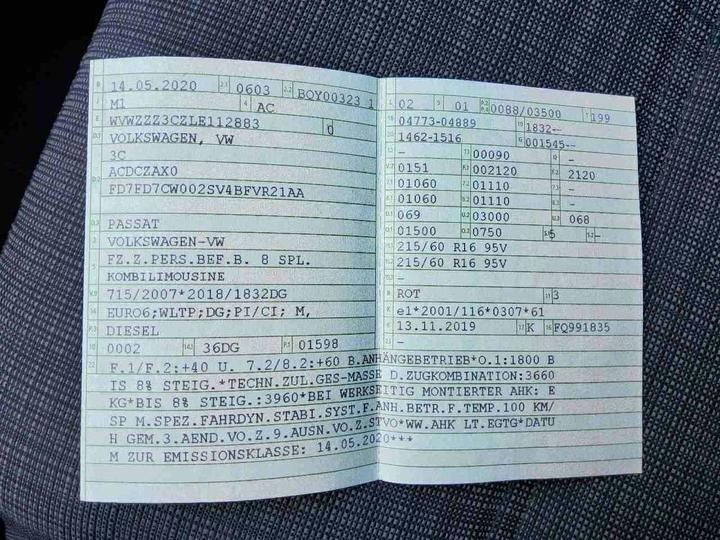 B 14.05.2020 2.1 0603 2.2 BQY00323 1
J M1 4 AC
E WVWZZZ3CZLE112883 0
D.1 VOLKSWAGEN, VW
3C
D.2 ACDCZAX0
FD7FD7CW002SV4BFVR21AA
D.3 PASSAT
2 VOLKSWAGEN-VW
5 FZ.Z.PERS.BEF.B. 8 SPL.
KOMBILIMOUSINE
V.9 715/2007*2018/1832DG
14 EURO6;WLTP;DG;PI/CI; M,
P.3 DIESEL
10 0002 14.1 36DG P.1 01598
L 02 9 01 P.2 P.4 0088/03500 T 199
18 04773-04889 19 1832--
20 1462-1516 G 001545--
12 - 13 00090 Q -
V.7 0151 F.1 002120 F.2 2120
7.1 01060 7.2 01110 7.3 -
8.1 01060 8.2 01110 8.3 -
U.1 069 U.2 03000 U.3 068
O.1 01500 O.2 0750 S.1 5 S.2 -
15.1 215/60 R16 95V
15.2 215/60 R16 95V
15.3 -
R ROT 11 3
K e1*2001/116*0307*61
6 13.11.2019 17 K 16 FQ991835
21 -
22 F.1/F.2:+40 U. 7.2/8.2:+60 B.ANHÄNGEBETRIEB*O.1:1800 B
IS 8% STEIG.*TECHN.ZUL.GES-MASSE D.ZUGKOMBINATION:3660
KG*BIS 8% STEIG.:3960*BEI WERKSEITIG MONTIERTER AHK: E
SP M.SPEZ.FAHRDYN.STABI.SYST.F.ANH.BETR.F.TEMP.100 KM/
H GEM.3.AEND.VO.Z.9.AUSN.VO.Z.STVO*WW.AHK LT.EGTG*DATU
M ZUR EMISSIONSKLASSE: 14.05.2020***